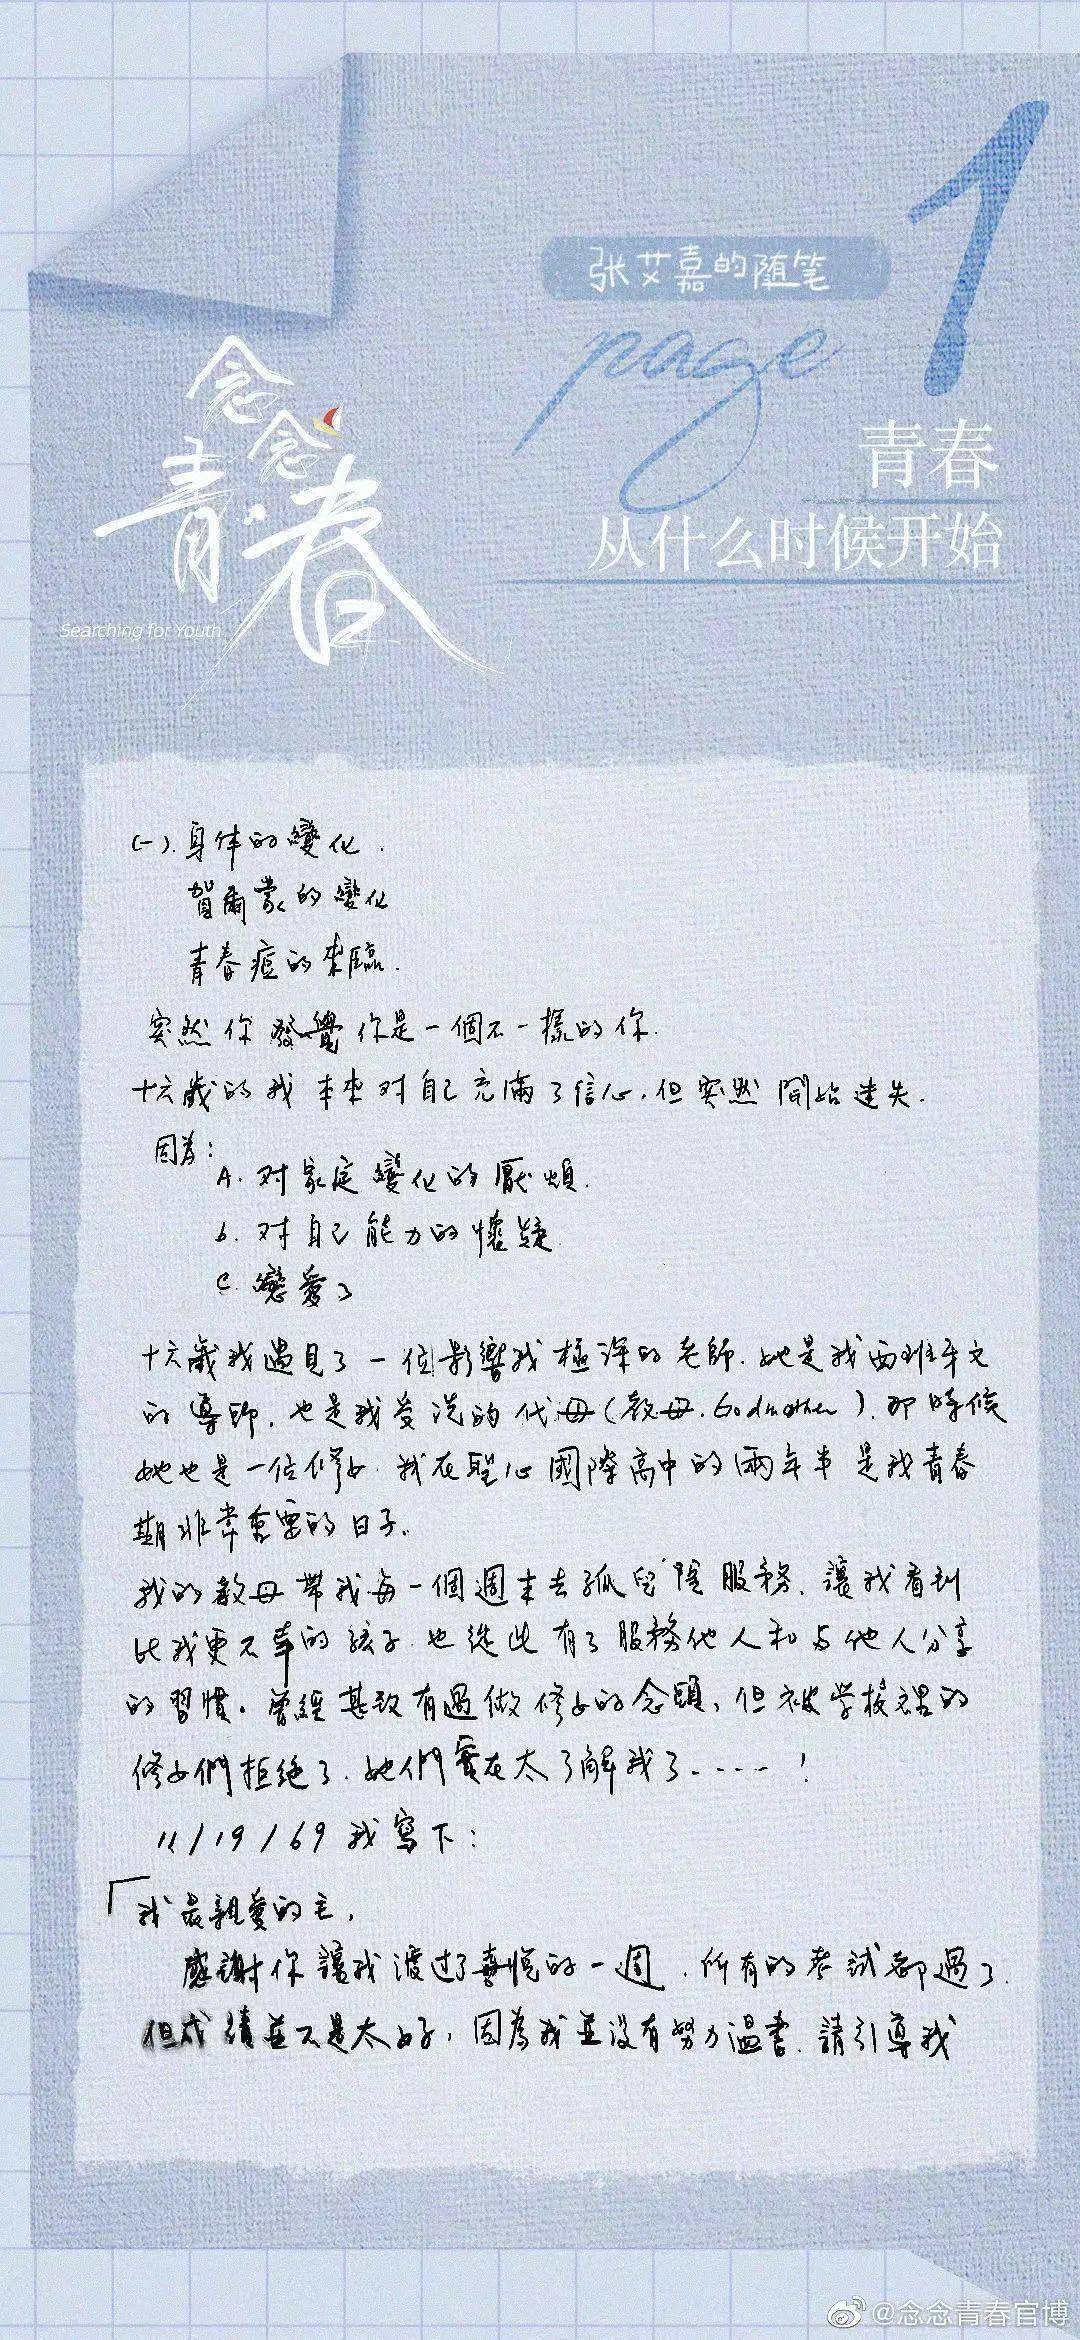 张艾嘉的随笔
page 1
念念青春
Searching for Youth
青春
从什么时候开始
(一).身体的變化.
賀爾蒙的變化
青春痘的來臨.
突然你發覺你是一個不一樣的你.
十六歲的我本來对自己充滿了信心.但突然開始迷失.
因為:
A.对家庭變化的厭煩.
b.对自己能力的懷疑
C.戀愛了
十六歲我遇見了一位影響我極深的老師.她是我西班牙文
的導師.也是我受洗的代母(教母.Godmother).那時候
她也是一位修女.我在聖心國際高中的兩年半是我青春
期非常重要的日子.
我的教母帶我每一個週末去孤兒院服務.讓我看到
比我更不幸的孩子.也從此有了服務他人和与他人分享
的習慣。曾經甚致有過做修女的念頭,但被学校裡的
修女們拒絕了.她們實在太了解我了.....!
11/19/69我寫下:
「我最親愛的主,
感謝你讓我渡过了喜悅的一週.所有的考試都過了.
但成績並不是太好,因為我並沒有努力温書.請引導我
@念念青春官博